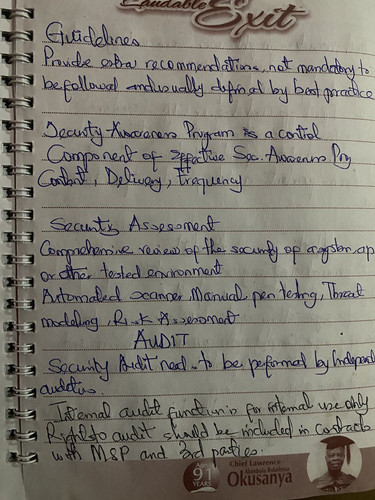 Laudable
Exit
Guidelines
Provide extra recommendations, not mandatory to
be followed and usually defined by best practice
Security Awareness Program is a control
Component of Effective Sec. Awareness Prg
Content, Delivery, Frequency
Security Assessment
Comprehensive review of the security of a system, app
or other tested environment
Automated scanner, Manual pen testing, Threat
modeling, Risk Assessment
AUDIT
Security Audit need to be performed by Independ
auditors.
Internal audit function is for internal use only
Right to audit should be included in contracts
with MSP and 3rd parties.
91
YEARS
Chief Lawrence
Okusanya